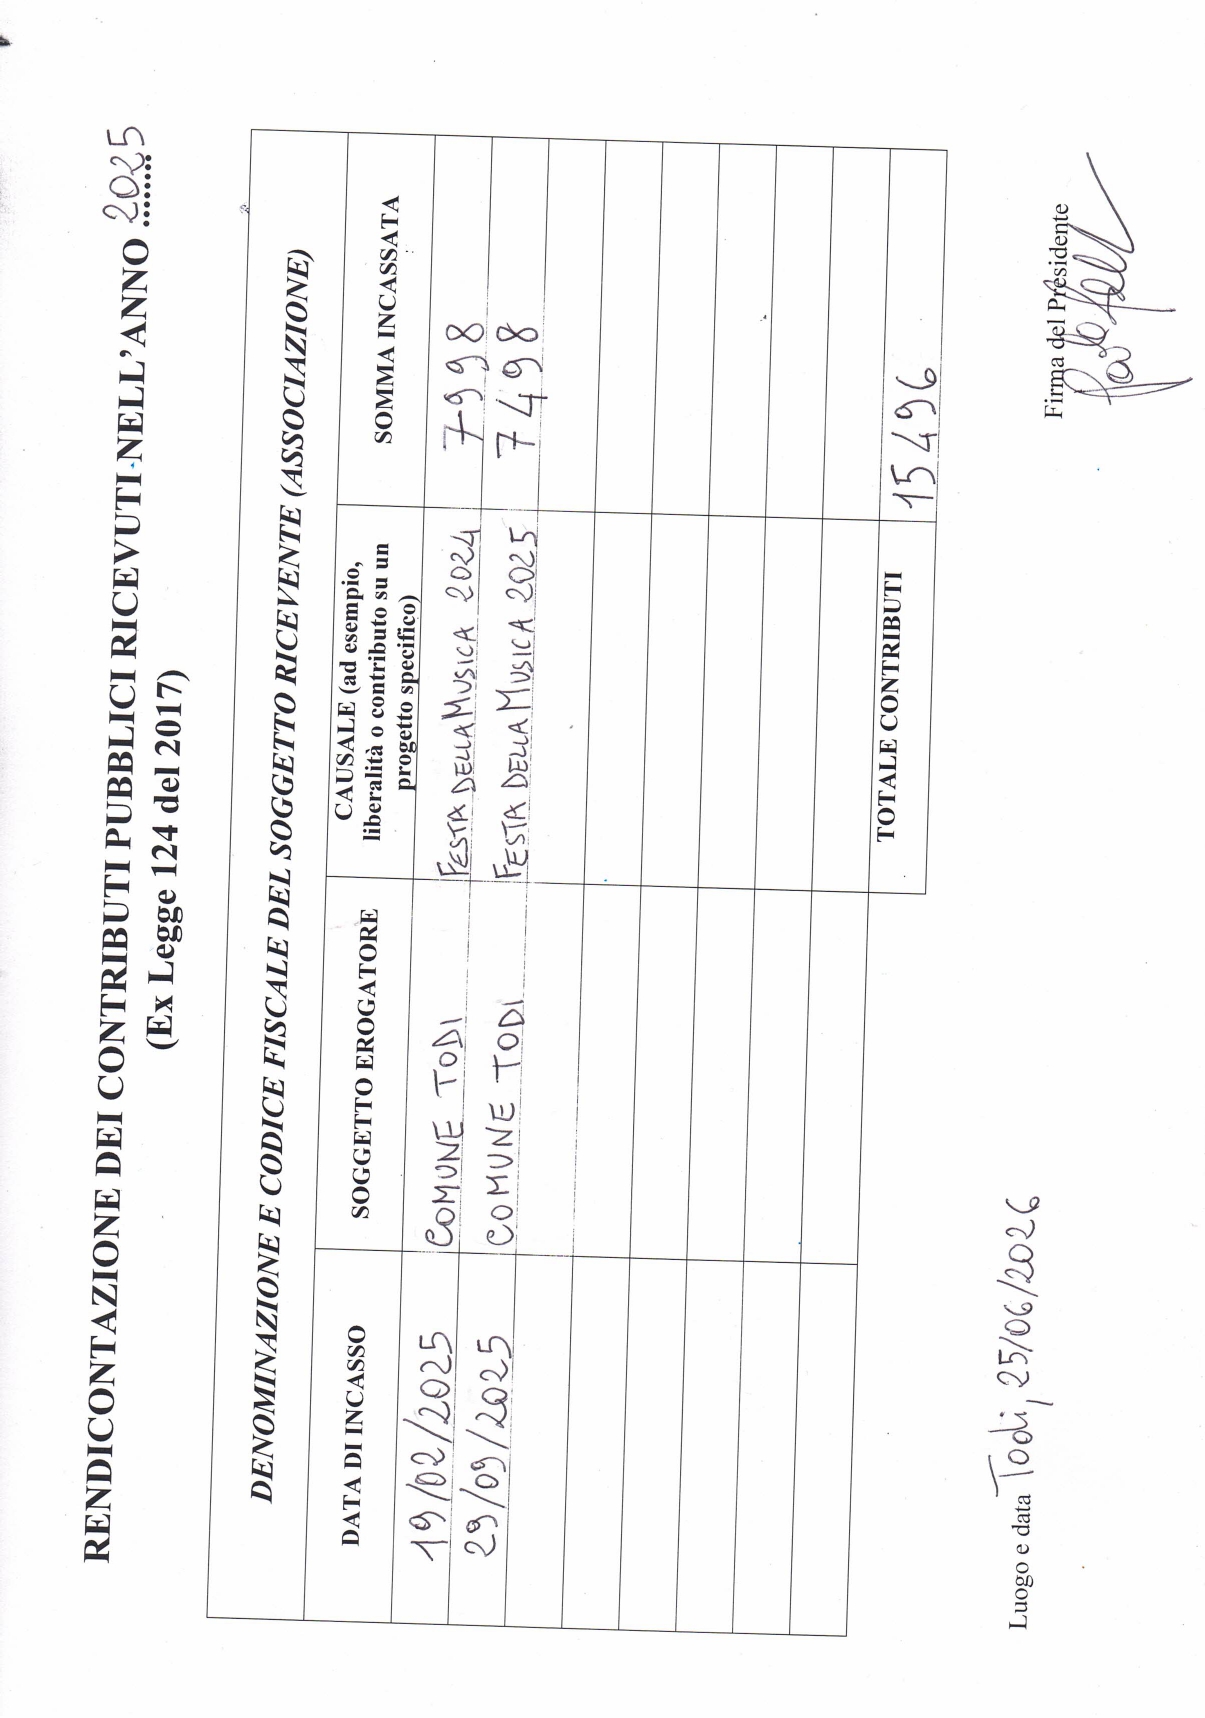 RENDICONTAZIONE DEI CONTRIBUTI PUBBLICI RICEVUTI NELL'ANNO 2025
(Ex Legge 124 del 2017)
DENOMINAZIONE E CODICE FISCALE DEL SOGGETTO RICEVENTE (ASSOCIAZIONE)
DATA DI INCASSO SOGGETTO EROGATORE CAUSALE (ad esempio, SOMMA INCASSATA
liberalità o contributo su un
progetto specifico)
19/02/2025 COMUNE TODI FESTA DELLA MUSICA 2024 7998
29/09/2025 COMUNE TODI FESTA DELLA MUSICA 2025 7498
TOTALE CONTRIBUTI 15496
Luogo e data Todi, 25/06/2026
Firma del Presidente